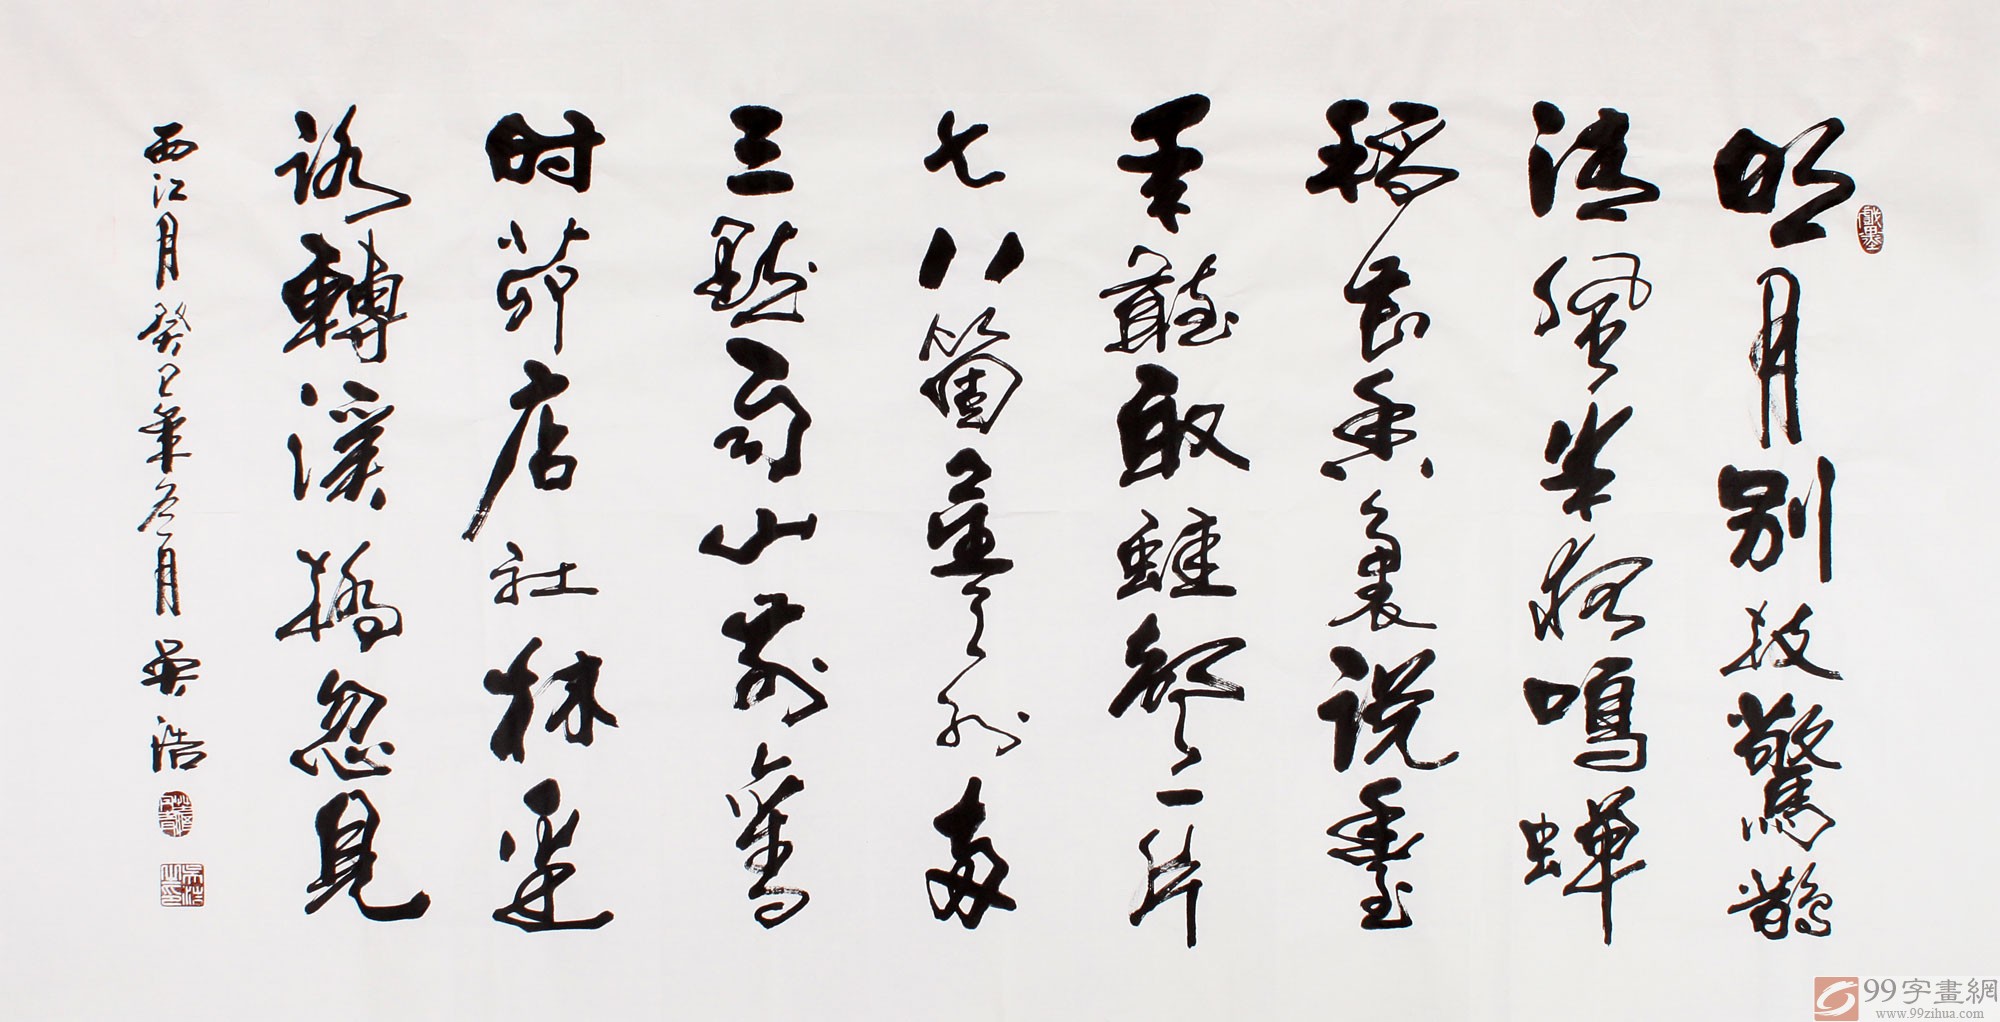 明月别枝驚鵲
清風半夜鳴蟬
稻花香裏説豐
年聽取蛙聲一片
七八箇星天外兩
三點雨山前舊
时茆店社林邊
路轉溪橋忽見
西江月癸巳年冬月吳浩
戲墨
吳浩之印
99字畫網
www.99zihua.com